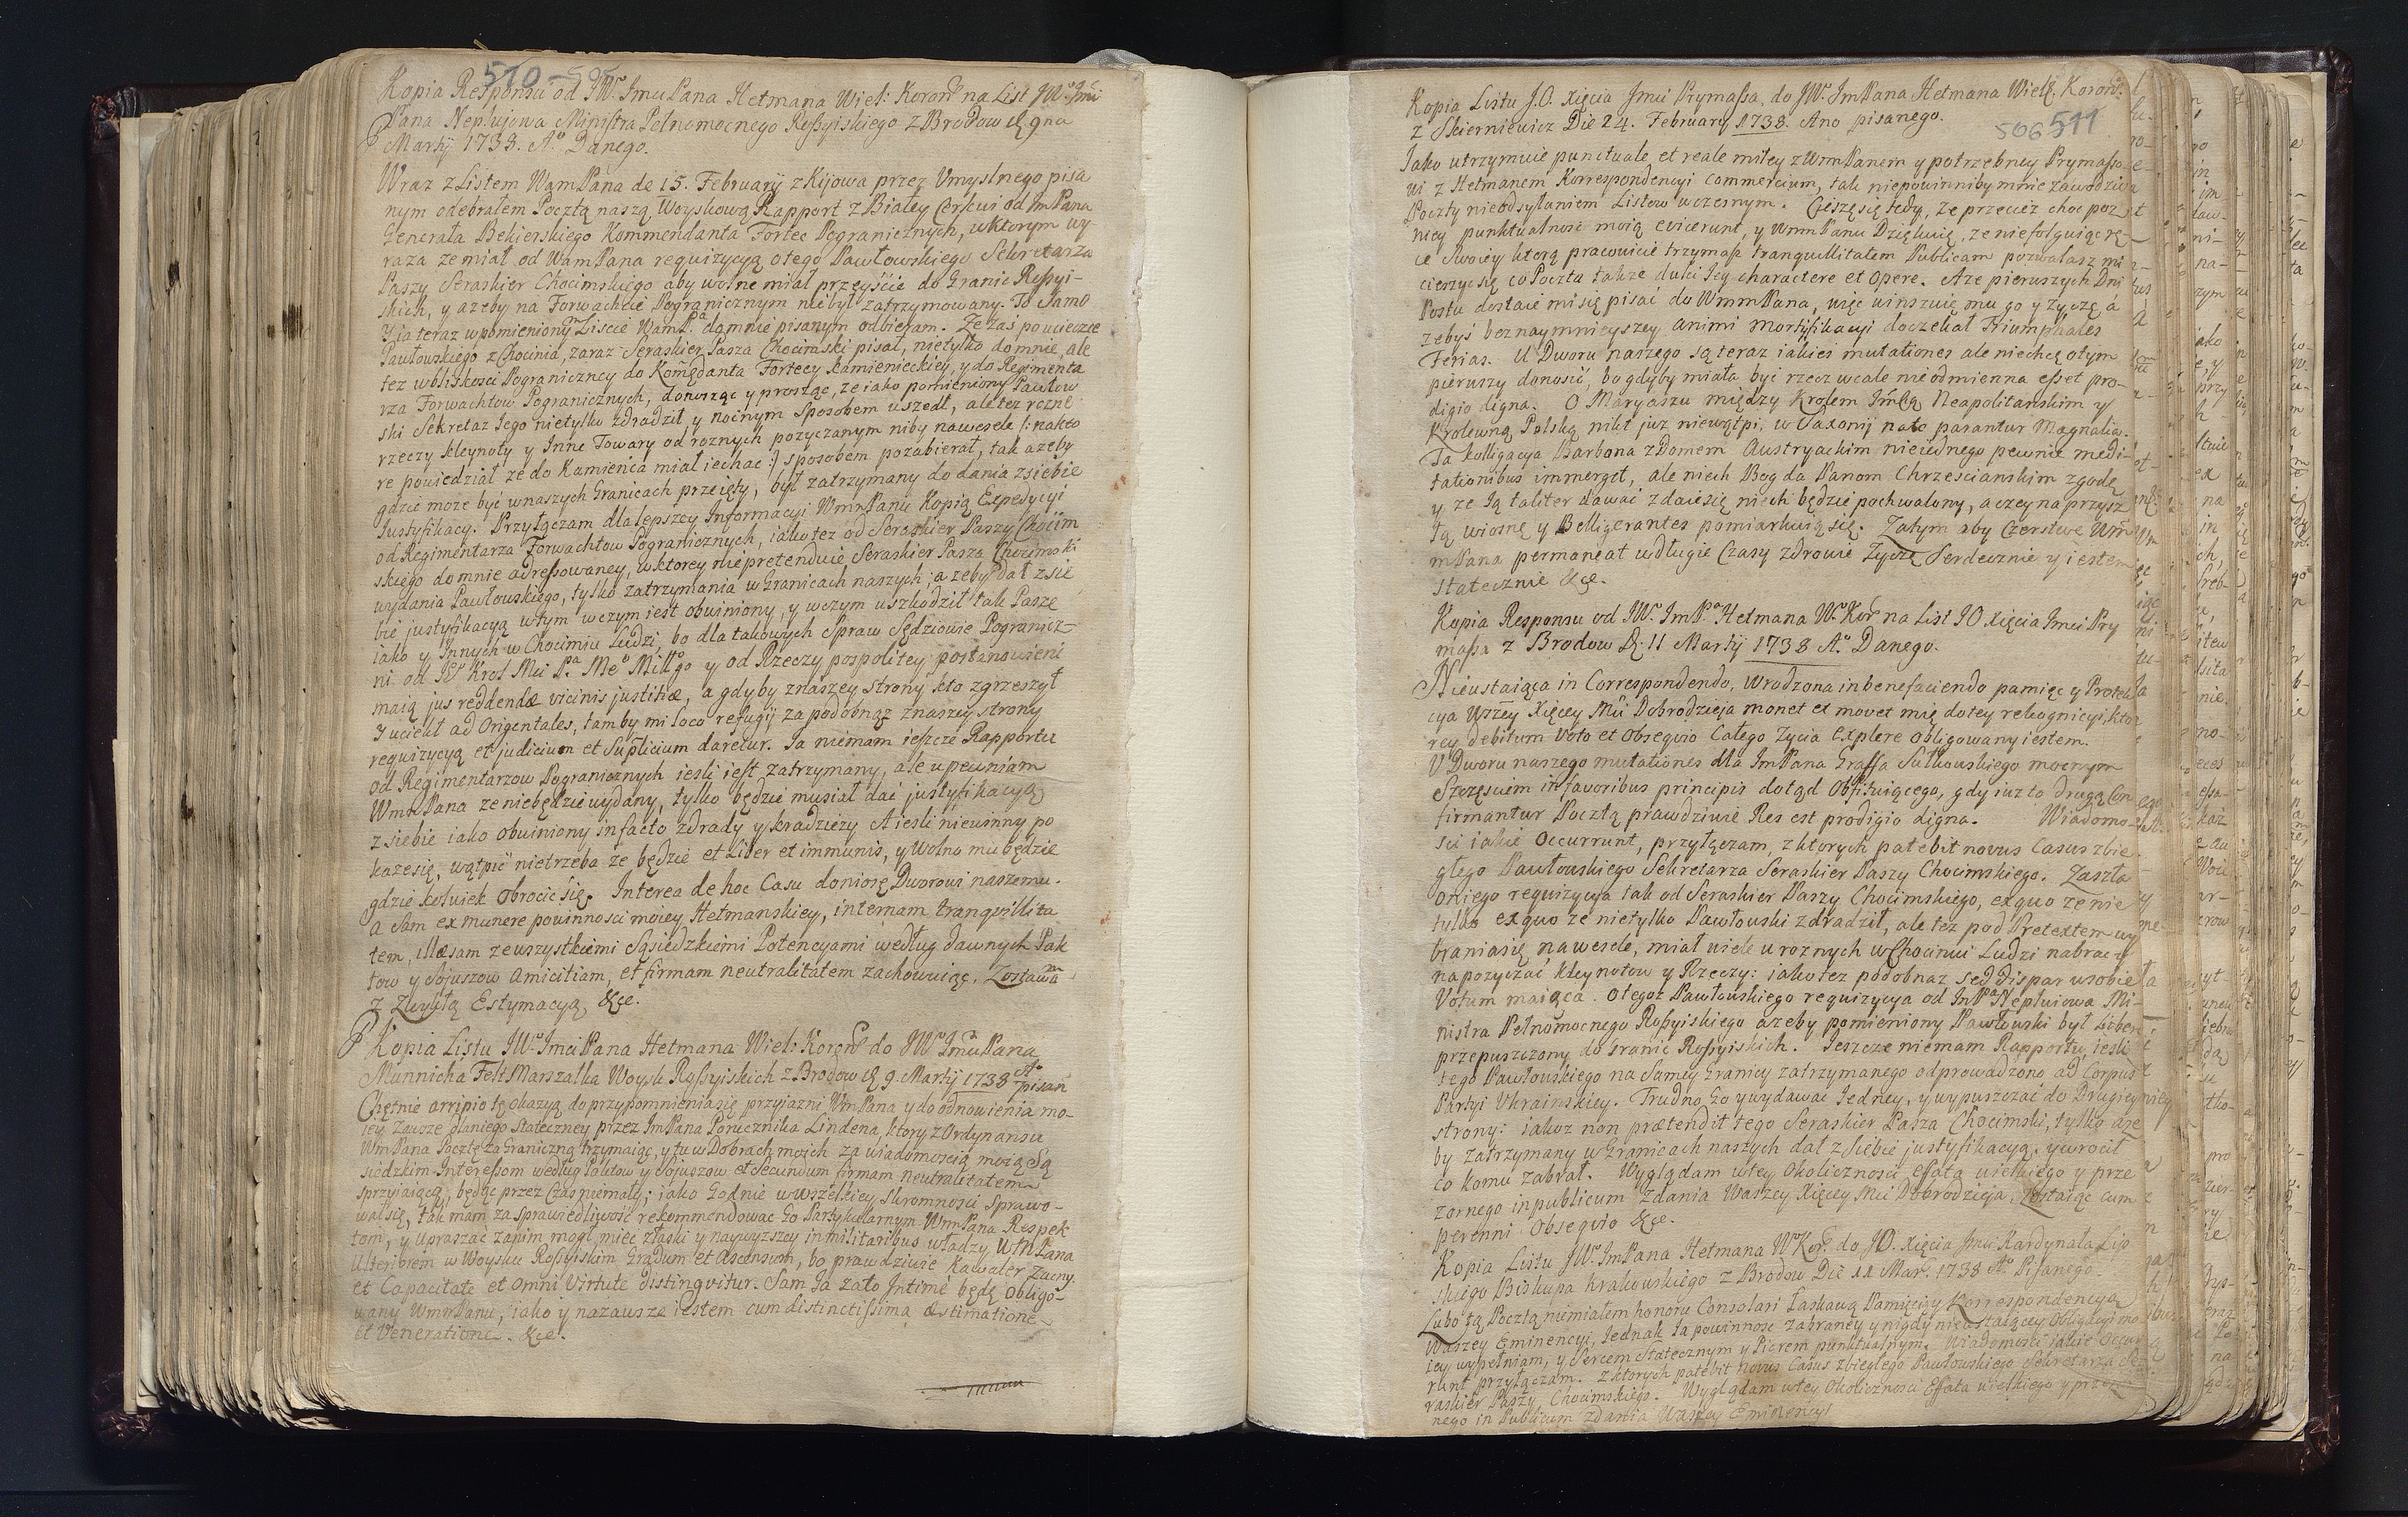 510
Kopia Responsu od JW. Jmci Pana Hetmana Wiel: Koron: na List JW. Jmci
Pana Neplujowa Ministra Pełnomocnego Roßyiskiego z Brodow d. 9na
Martij 1738. A° Danego.
Wraz z Listem WamPana de 15. Februarij z Kijowa przez Umyslnego pisa
nym odebrałem Pocztą naszą Woyskową Rapport z Białey Cerkwi od ImPana
Generała Bekierskiego Kommendanta Fortec Pogranicznych, w ktorym wy-
raza ze miał od WamPana requizycyą o tego Pawłowskiego Sekretarza
Paszy Seraskier Chocimskiego aby wolne miał przeyście do Granic Roßyi-
skich, y azeby na Forwachcie Pogranicznym nie był zatrzymowany. To Samo
Y ia teraz w pomienionym Liscie WamPa do mnie pisanym odbieram. Ze zaś po ucieczce
Pawłowskiego z Chocimia, zaraz Seraskier Pasza Chocimski pisał, nie tylko do mnie, ale
tez w bliskosci Pograniczney do Komędanta Fortecy Kamienieckiey, y do Regimenta
rza Forwachtow Pogranicznych, donosząc y prosząc, ze iako pomieniony Pawłow
ski Sekretaz Jego nietylko zdradził, y nocnym sposobem uszedł, ale tez rozne
rzeczy kleynoty y Inne Towary od roznych pozyczanym niby na wesele /: na kto
re powiedział ze do Kamieńca miał iechac :/ sposobem pozabierał, tak azeby
gdzie może być w naszych Granicach przeięty, był zatrzymany do dania z siebie
Justyfikacyi. Przyłączam dla lepszey Informacyi WmmPanu Kopią Expedycyi
od Regimentarza Forwachtow Pogranicznych, iako tez od Seraskier Paszy Chocim
skiego do mnie adreßowaney, w ktorey nie pretenduie Seraskier Pasza Chocimski
wydania Pawłowskiego, tylko zatrzymania w Granicach naszych; a zeby dał z sie
bie justyfikacyą w tym w czym iest obwiniony, y w czym uszkodził tak Paszę
iako y Innych w Chocimiu Ludzi, bo dla takowych Spraw Sędziowie Pogranicz-
ni od JW Krol Mci Pa Meo Miłgo y od Rzeczy pospolitey postanowieni
maią jus reddendæ vicinis justitiæ, a gdyby z naszey strony kto zgrzeszył
Y uciekł ad Orientales, tam by mi loco refugij za podobnąz z naszey strony
requizycyą et judicium et Suplicium daretur. Ja niemam ieszcze Rapportu
od Regimentarzow Pogranicznych iesli iest zatrzymany, ale upewniam
WmmPana ze niebędzie wydany, tylko będzie musiał dać justyfikacyą
z siebie iako obwiniony in facto zdrady y kradziezy A iesli niewinny po
kaze się, wątpić nietrzeba ze będzie et Liber et immunis, y wolno mu będzie
gdzie kolwiek obrocić się. Interea de hoc Casu doniosę Dworowi naszemu.
a Sam ex munere powinnosci moiey Hetmanskiey, internam tranquillita
tem, illæsam ze wszystkiemi Sąsiedzkiemi Potencyami według dawnych Pak
tow y Sojuszow amicitiam, et firmam neutralitatem zachowuiąc, Zostawam
z Zwykłą Estymacyą, &ce.
Kopia Listu JW. Jmci Pana Hetmana Wiel: Koron: do JW Jmci Pana
Munnicha Felt Marszałka Woysk Roßyiskich z Brodow d. 9. Martij 1738 A° pisan
Chętnie arripio tę okazyą do przypomnienia się przyiazni WmPana y do odnowienia mo-
iey Zawsze dla niego stateczney przez ImPana Porucznika Lindena, ktory z Ordynansu
WmPana Pocztę za Graniczną trzymaiąc, y tu w Dobrach moich za wiadomoscią moią Są
siedzkim Intereßom według Paktow y Sojuszow et Secundum firmam neutralitatem
sprzyiaiącą, będąc przez Czas niemały; iako Godnie w wszelkiey Skromnosci Sprawo-
wał się, tak mam za sprawiedliwość rekommendowac Go Partykularnym WmPana Respek
tom, y Upraszać zanim mogł miec z łaski y naywyzszey in militaribus władzy WmPana
Ulteriorem w Woysku Roßyiskim Gradum et Ascensum, bo prawdziwie Kawaler Zacny.
et Capacitate et Omni Virtute distinguitur. Sam Ja zato Intimè będę obligo-
wany WmmPanu, iako y nazawsze iestem cum distinctissima æstimatione
et Veneratione. &ce.
Kopia Listu J.O. Xięcia Jmci Prymaßa, do JW. ImPana Hetmana Wielk. Koron.
z Skierniewic Die 24. February 1738. Ano pisanego.
506 511
Jako utrzymuie punctuale et reale miłey z WmmPanem y potrzebney Prymaßo
wi z Hetmanem Korrespondencyi commercium, tak niepowinniby mnie zawodzić
Poczty nieodsyłaniem Listow wczesnym. Cieszę się tedy, ze przecież choc poz
niey punktualnosc moią evicerunt, y WmmPanu Dziękuię, ze niefolguiąc rę-
ce Swoiey ktorą pracowicie trzymasz tranquillitatem Publicam pozwalasz mi
cieszyc się co Poczta takze dulci Jey charactere et Opere. Aze pierwszych Dni
Postu dostaie mi się pisać do WmmPana, więc winszuię mu go y zyczę á
zebyś bez naymnieyszey animi mortyfikacyi doczekał Triumphales
Ferias. U Dworu naszego są teraz iakies mutationes ale niechcę otym
pierwszy donosić, bo gdyby miała być rzecz wcale nieodmienna esset pro-
digio digna. O Maryaszu między Krolem Jmcią Neapolitanskim y
Krolewną Polską nikt juz niewątpi, w Saxonij na to parantur Magnalia.
Ta kolligacya Barbona z Domem Austryackim niejednego pewnie medi-
tationibus immerget, ale niech Bog da Panom Chrzescianskim zgodę
y ze Ją taliter dawać zdaie się niech będzie pochwalony, a czey na przysz
łą wiosnę y Belligerantes pomiarkuią się. Zatym aby Czerstwe Wm̄
mPana permaneat w długie Czasy zdrowie Zyczę Serdecznie y iestem
statecznie &ce.
Kopia Responsu od JW. ImPa Hetmana W. Kor. na List JO Xięcia Jmci Pry
maßa z Brodow d. 11 Martij 1738 A° Danego.
Nieustaiąca in Correspondendo, wrodzona in benefaciendo pamięc y Protek
cya Wszey Xięcey Mci Dobrodzieja monet et movet mię do tey rekognicyi, kto
rey debitum voto et obsequio Całego Zycia explere obligowany iestem.
U Dworu naszego mutationes dla ImPana Graffa Sułkowskiego mocnym
Szczęsciem in favoribus principis dotąd Obfituiącego, gdy iuz to drugą Con
firmantur Pocztą prawdziwie Res est prodigio digna. Wiadomo-
sci iakie Occurrunt, przyłączam, z ktorych patebit novus Casus zbie
głego Pawłowskiego Sekretarza Seraskier Paszy Chocimskiego. Zaszła
o niego requizycya tak od Seraskier Paszy Chocimskiego, ex quo ze nie
tylko ex quo ze nietylko Pawłowski zdradził, ale też pod Pretextem wy
braniasię na wesele, miał wiele u roznych w Chocimiu Ludzi nabrac y
napozyczać kleynotow y Rzeczy: iako tez podobnaz sed dispar w sobie
Votum maiąca. Otegoz Pawłowskiego requizycya od ImPa Neplujowa Mi-
nistra Pełnomocnego Roßyiskiego azeby pomieniony Pawłowski był liber
przepuszczony do Granic Roßyiskich. Jeszcze niemam Rapportu, iesli
tego Pawłowskiego na Samey Granicy zatrzymanego odprowadzono ad Corpus
Partyi Ukrainskiey. Trudno Go y wydawac Jedney, y wypuszczać do Drugiey
strony: iakoz non prætendit tego Seraskier Pasza Chocimski, tylko aze
by zatrzymany w Granicach naszych dał z siebie justyfikacyą, y wrocił
co komu zabrał. Wyglądam w tey okolicznosci effata wielkiego y prze
zornego in publicum zdania Waszey Xięcey Mci Dobrodzieja, Zostaiąc cum
perenni Obsequio &ce.
Kopia Listu JW. ImPana Hetmana W Kor. do JO. Xięcia Jmci Kardynała Lip
skiego Biskupa Krakowskiego z Brodow Die 11 Mar. 1738 A° Pisanego
Lubo tą Pocztą niemiałem honoru Consolari Łaskawą Pamięcią y Korrespondencyą
Waszey Eminencyi, Jednak Ja powinnosc zabraney y nigdy nieustaiącey Obligacyi mo
iey wypełniam, y Sercem Statecznym y Piorem punktualnym. Wiadomosci iakie Occur
runt przyłączam. z ktorych patebit novus Casus zbiegłego Pawłowskiego Sekretarza Se
raskier Paszy Chocimskiego. Wyglądam w tey Okolicznosci Effata wielkiego y przezor
nego in Publicum zdania Waszey Eminencyi